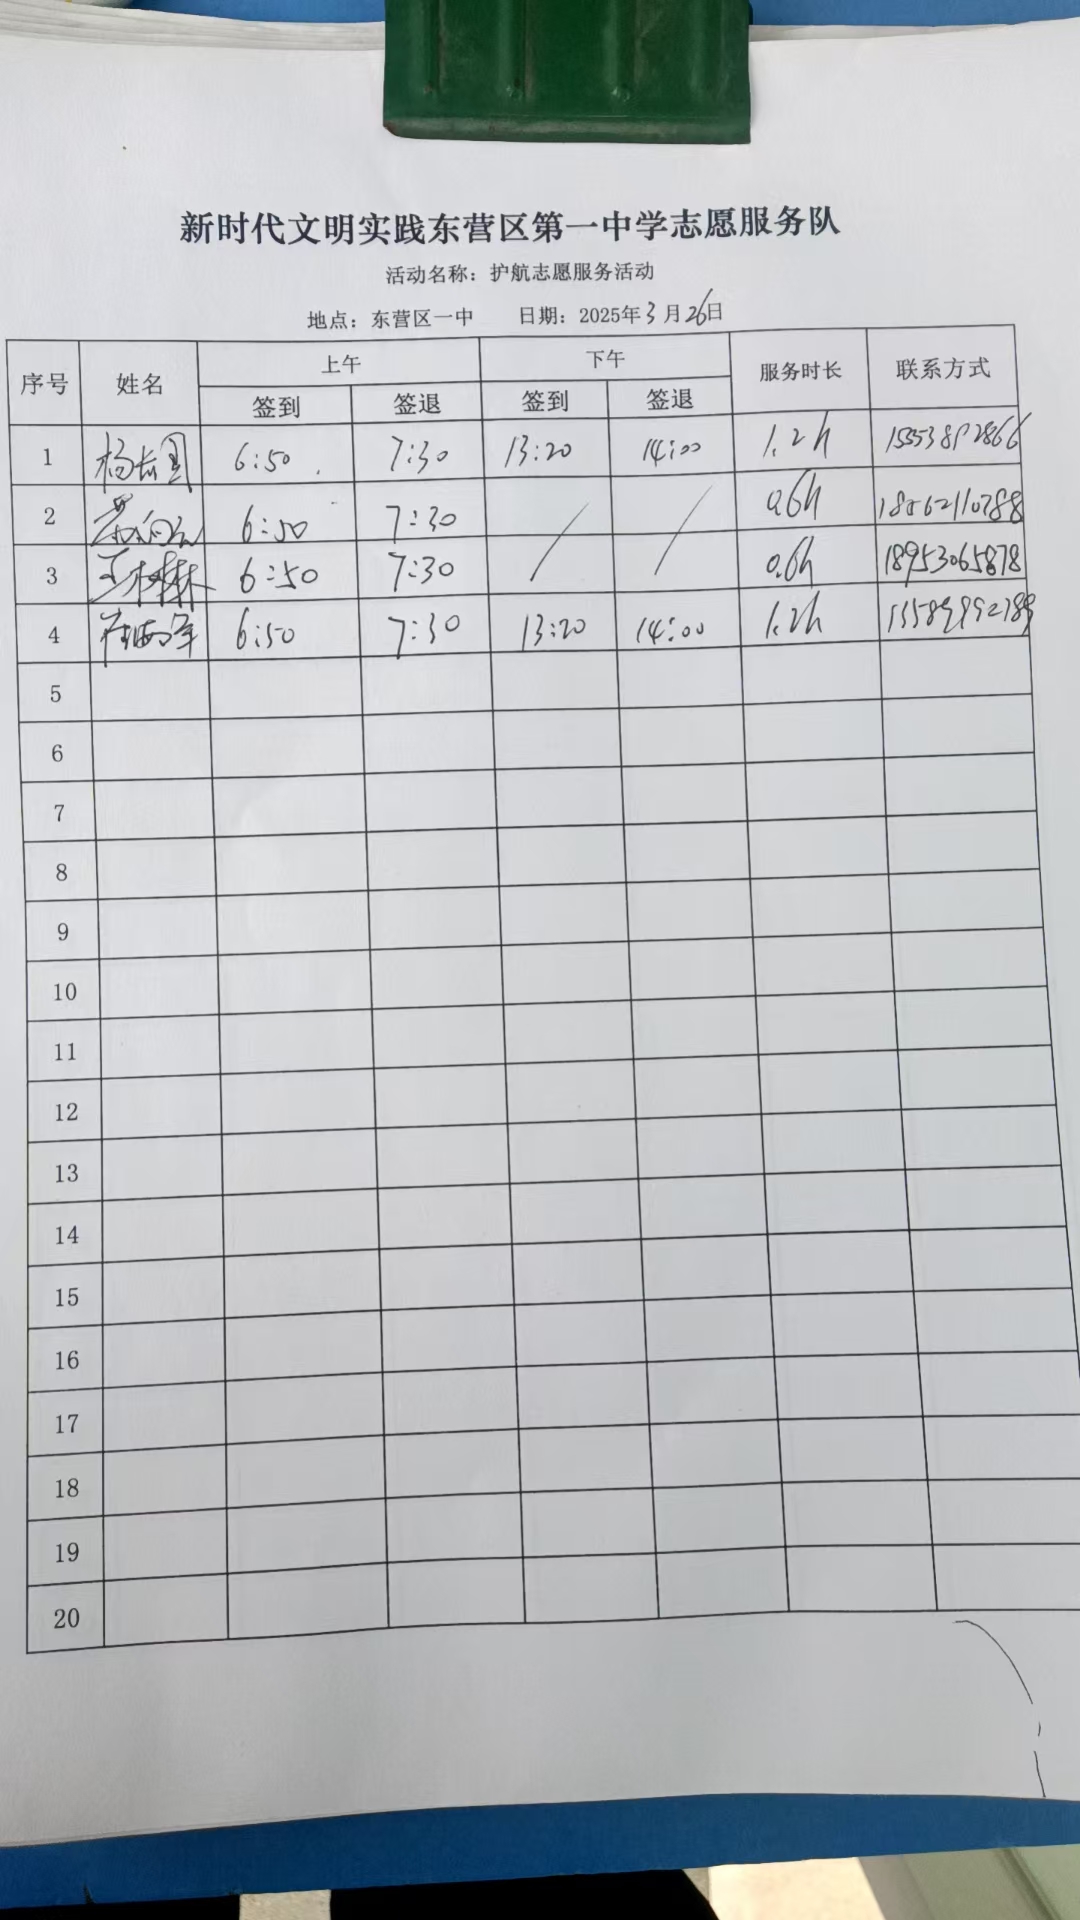 新时代文明实践东营区第一中学志愿服务队
活动名称：护航志愿服务活动
地点：东营区一中 日期：2025年3月26日
序号 姓名 上午 下午 服务时长 联系方式
签到 签退 签到 签退
1 6:50 7:30 13:20 14:00 1.2h
2 6:50 7:30 / / 0.6h
3 6:50 7:30 / / 0.6h 18953065878
4 6:50 7:30 13:20 14:00 1.2h
5
6
7
8
9
10
11
12
13
14
15
16
17
18
19
20